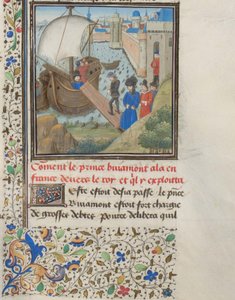 Coment le prince buiamont ala en
france deuers le roy et ql y exploitta
Leste estoit desia passe le prĩce
Buiamont estoit fort charge
de grosses debtes Pource delibera quil